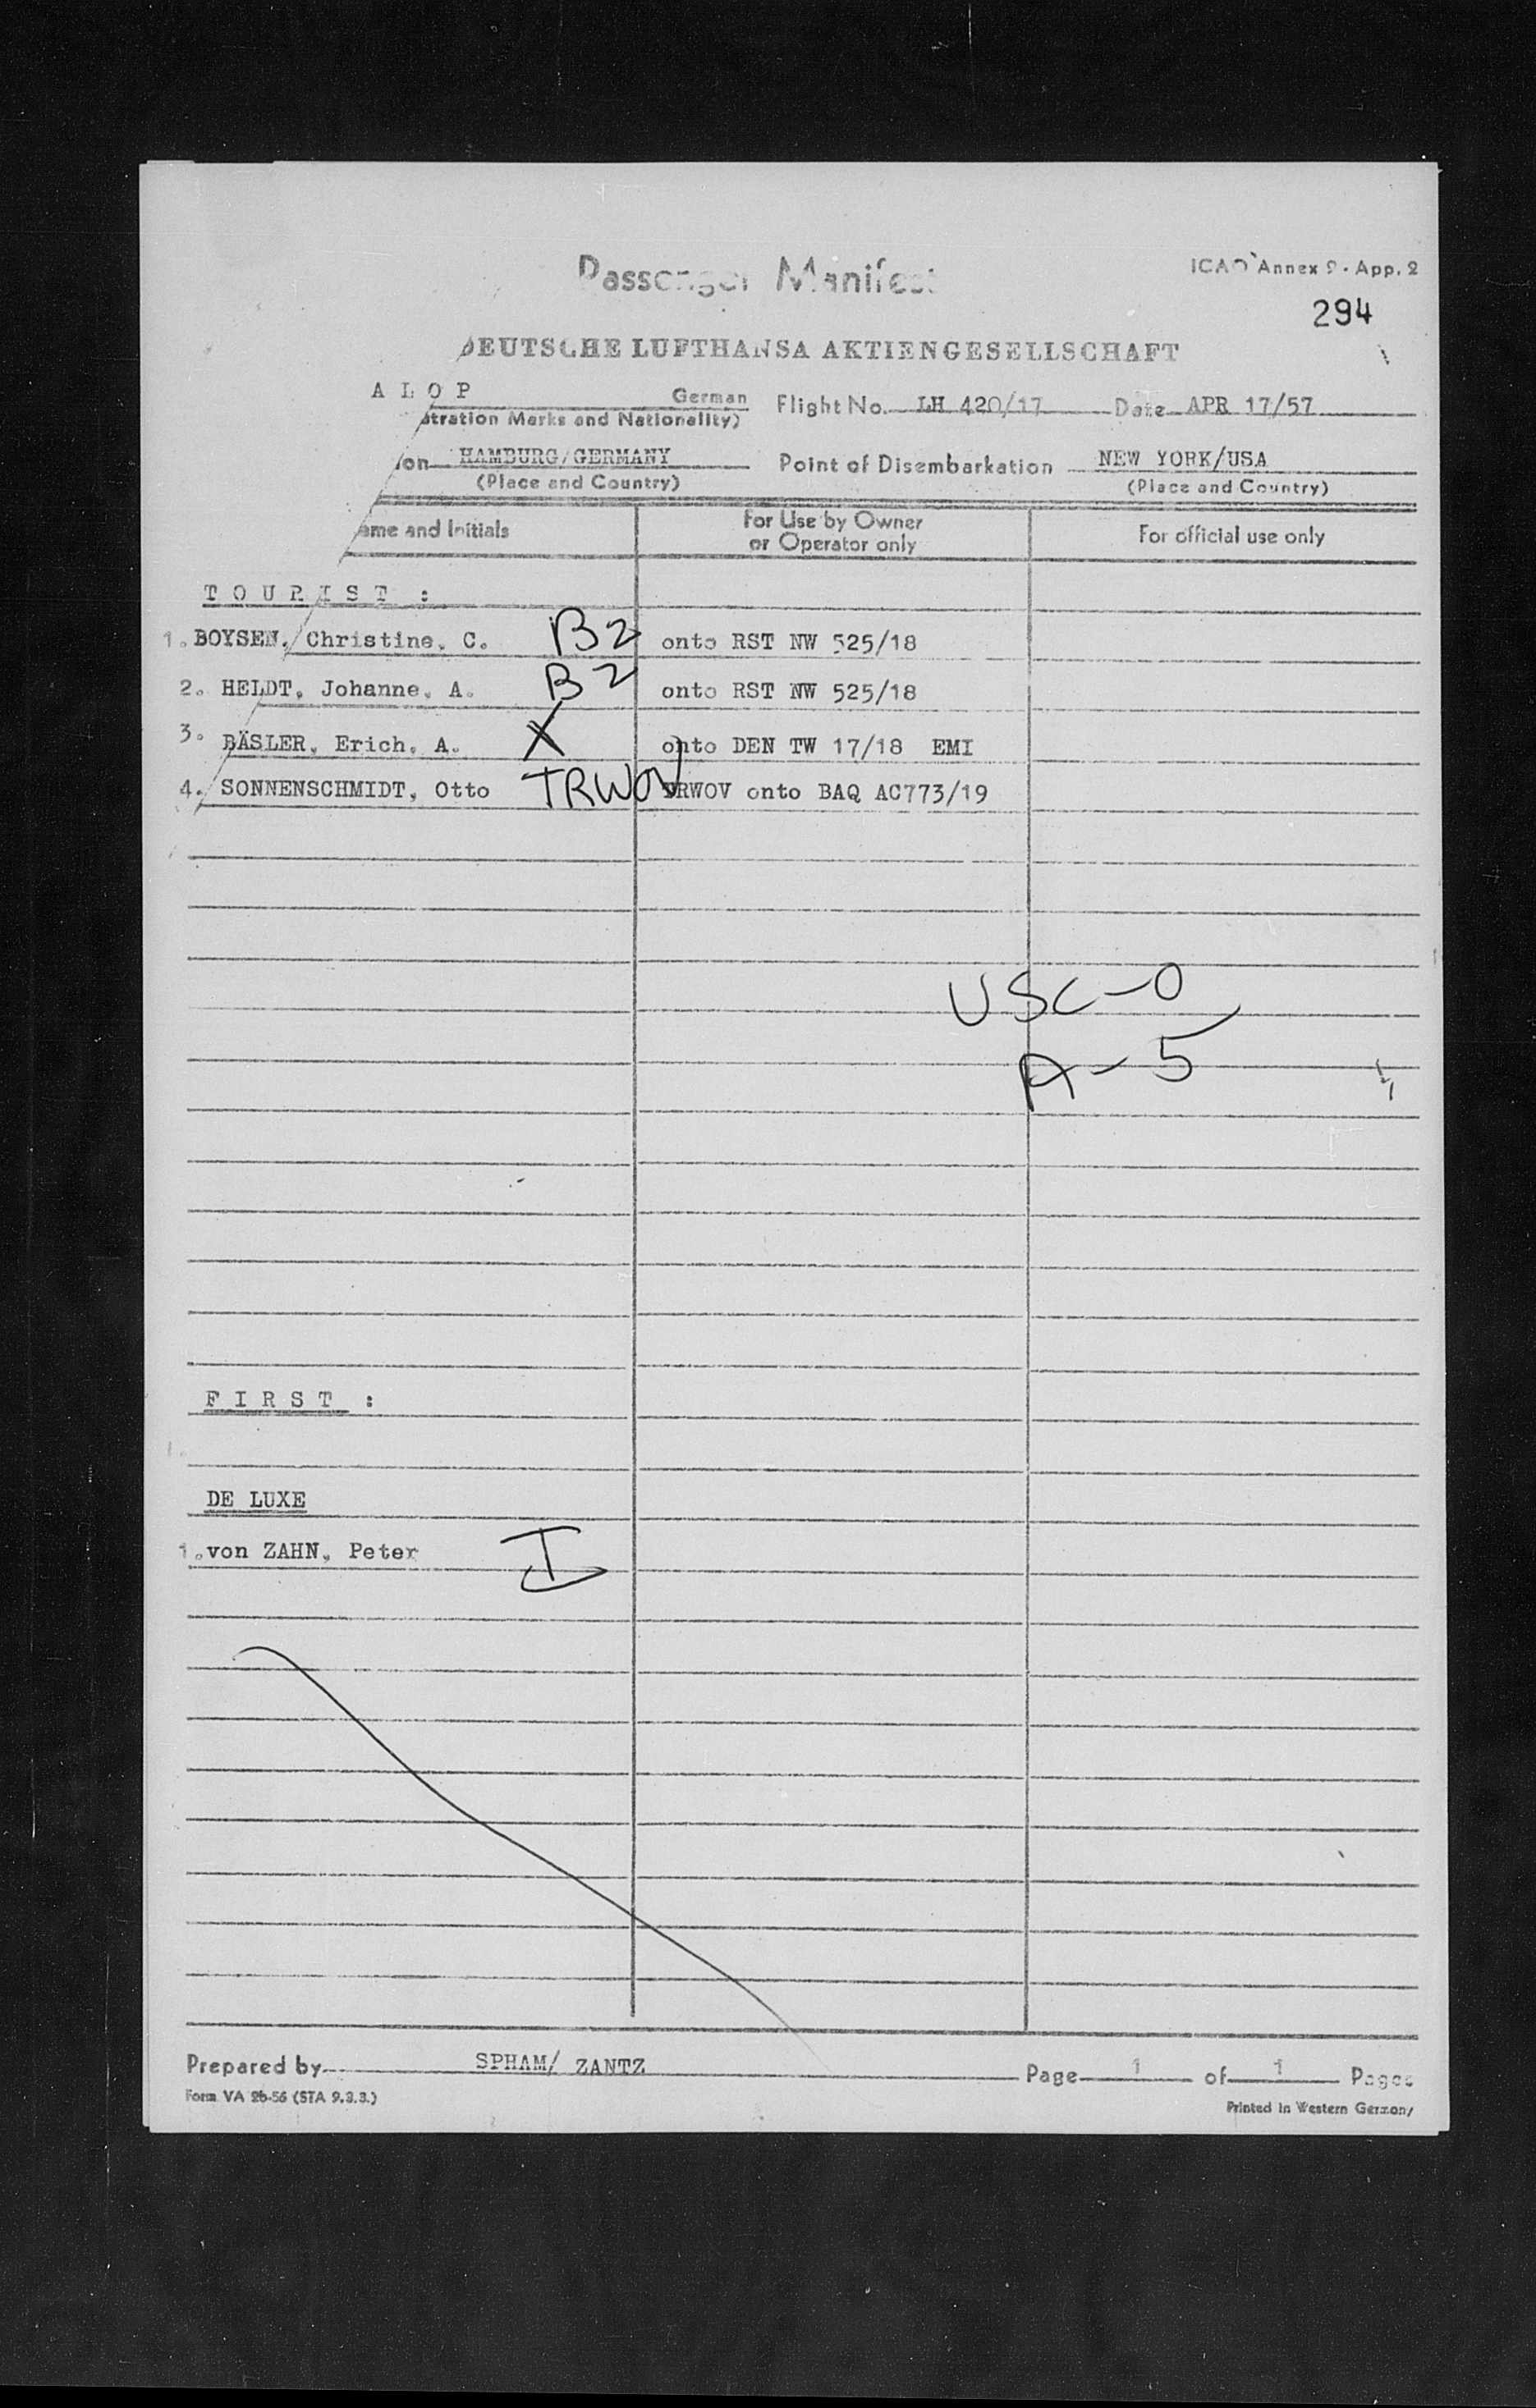 Passenger Manifest
ICAO Annex 9 · App. 2
294
DEUTSCHE LUFTHANSA AKTIENGESELLSCHAFT
A L O P German Flight No. LH 420/17 Date APR 17/57
stration Marks and Nationality)
ion HAMBURG/GERMANY Point of Disembarkation NEW YORK/USA
(Place and Country) (Place and Country)
ame and Initials For Use by Owner or Operator only For official use only
T O U R I S T :
1. BOYSEN, Christine, C. B2 onto RST NW 525/18
2. HELDT, Johanne, A. B2 onto RST NW 525/18
3. BÄSLER, Erich, A. X onto DEN TW 17/18 EMI
4. SONNENSCHMIDT, Otto TRWOV TRWOV onto BAQ AC773/19
USC-0
A-5
F I R S T :
1.
DE LUXE
1. von ZAHN, Peter I
Prepared by SPHAM/ ZANTZ Page 1 of 1 Pages
Form VA 2b-56 (STA 9.3.3.)
Printed in Western Germany